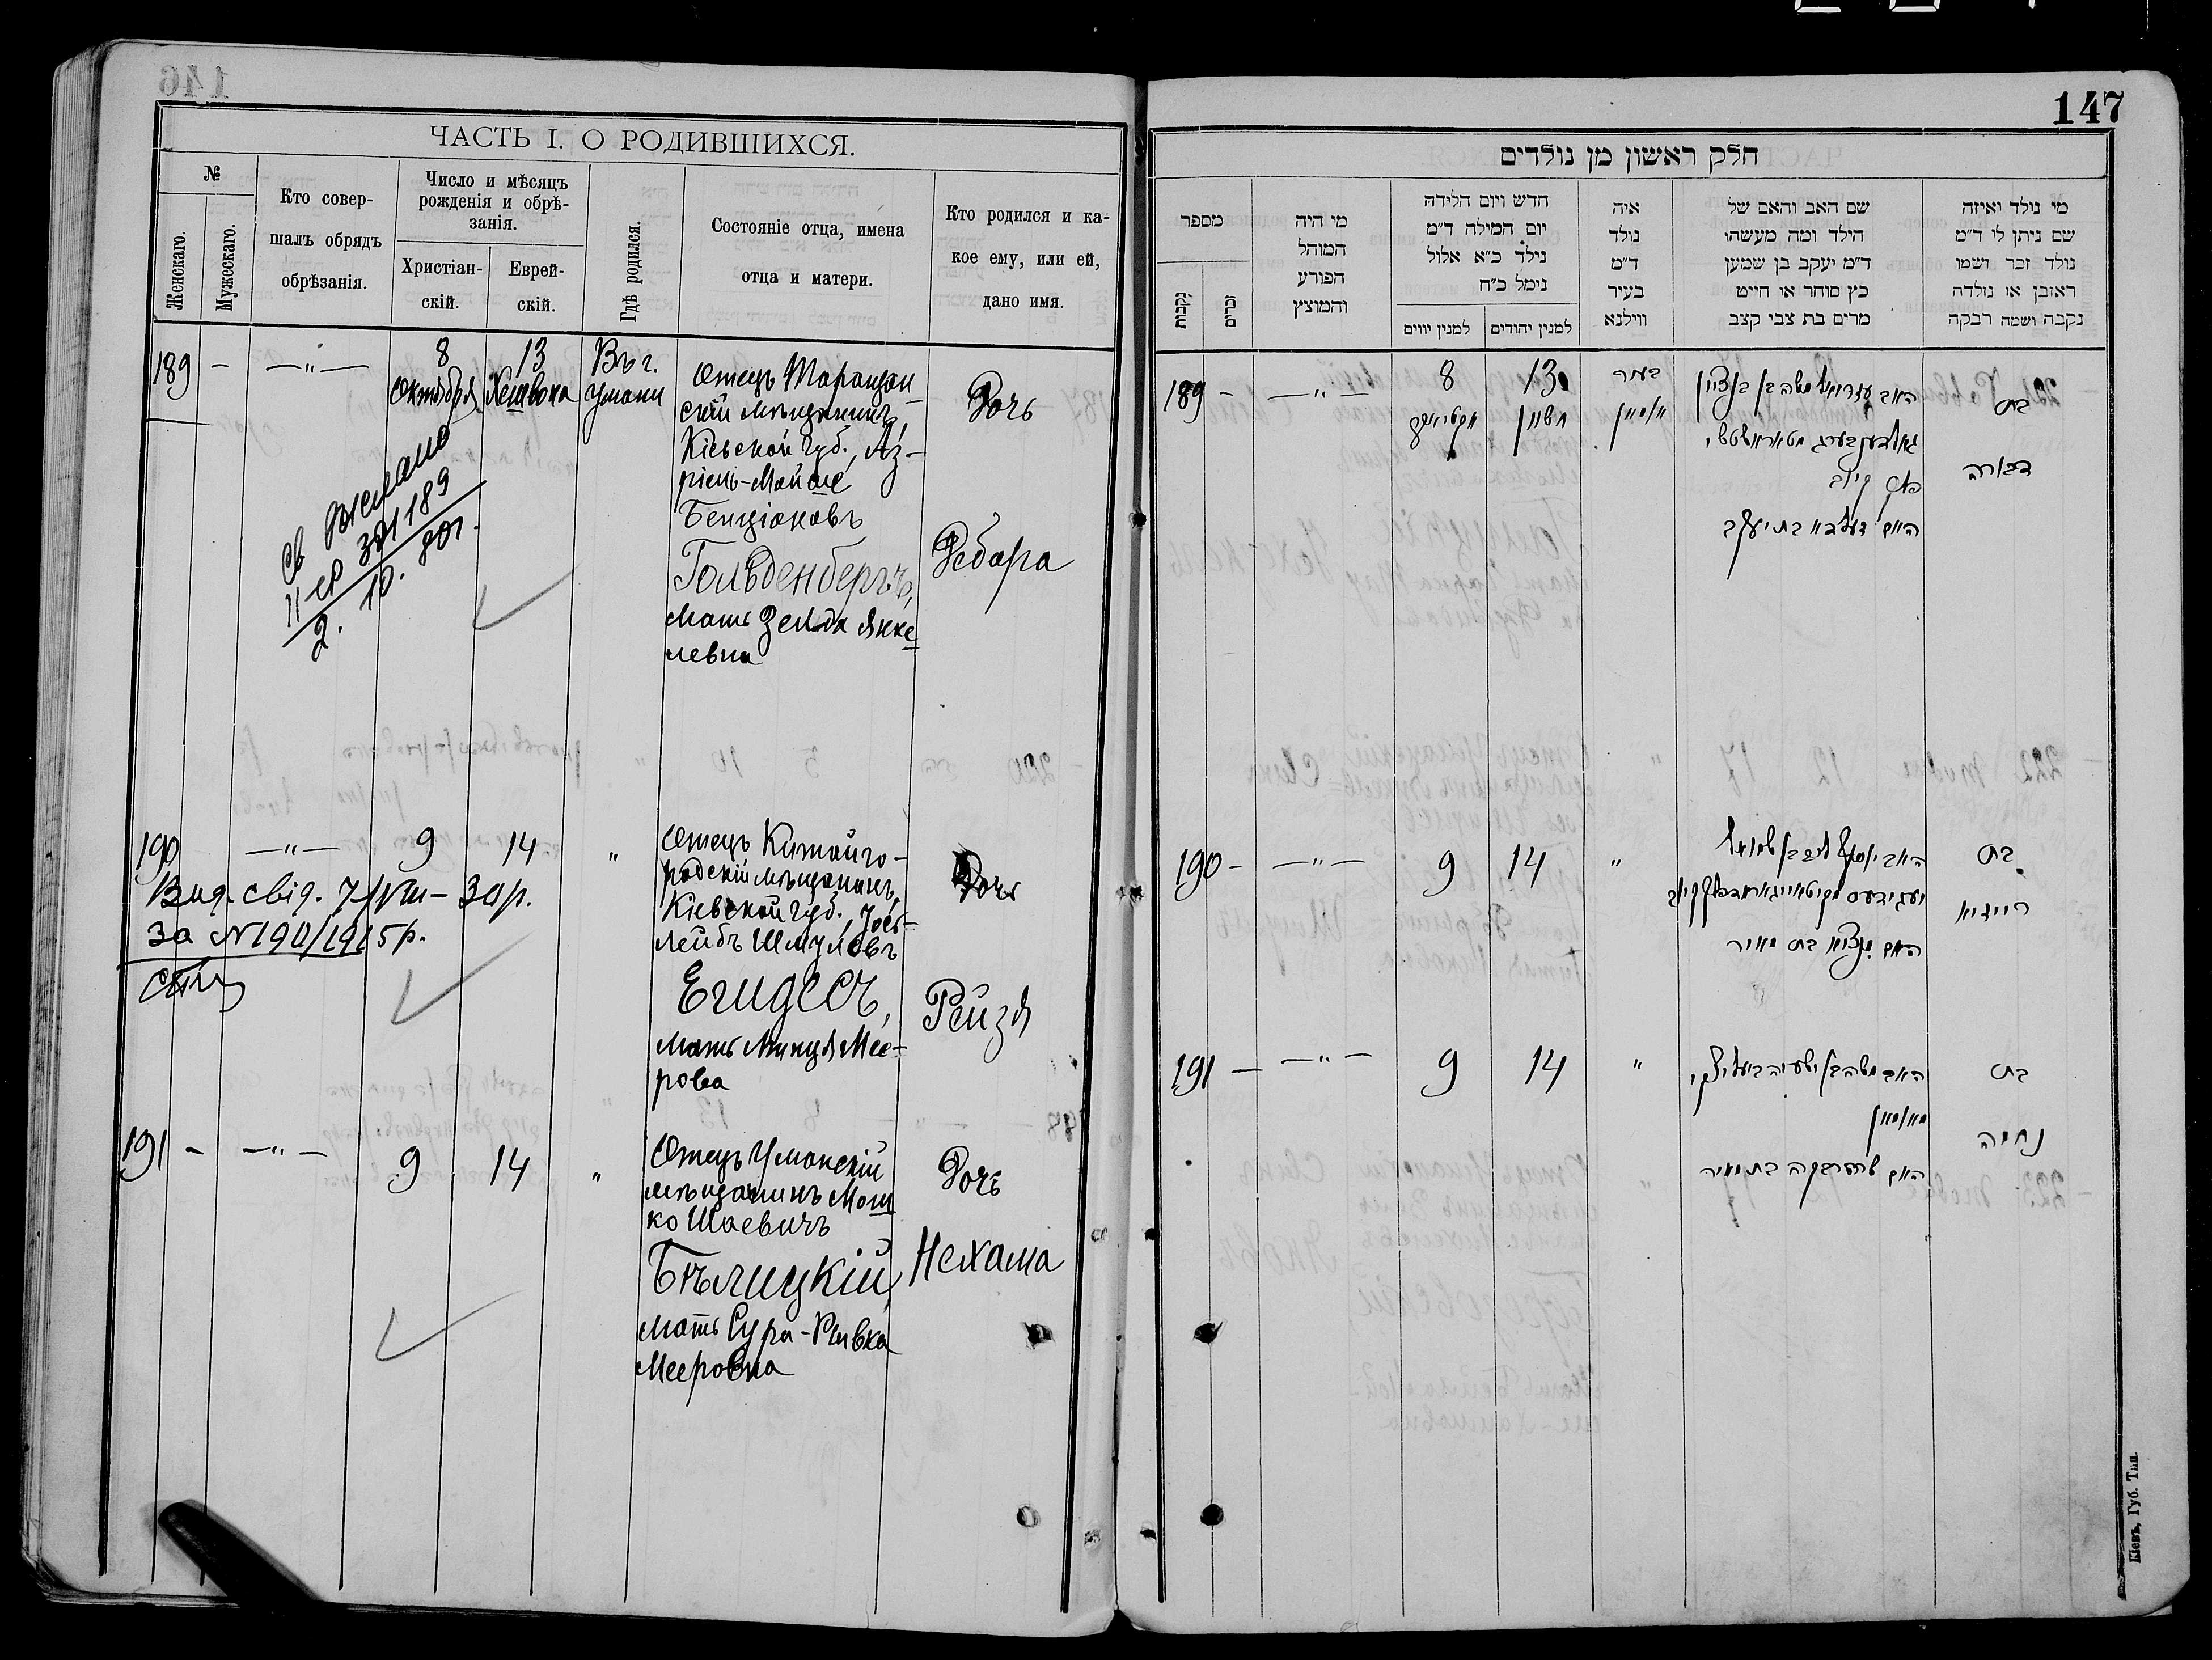 146
ЧАСТЬ I. О РОДИВШИХСЯ.
№
Женскаго.
Мужескаго.
Кто совер-
шалъ обрядъ
обрѣзанія.
Число и мѣсяцъ
рожденія и обрѣ-
занія.
Христіан-
скій.
Еврей-
скій.
Гдѣ родился.
Состояніе отца, имена
отца и матери.
Кто родился и ка-
кое ему, или ей,
дано имя.
189 - —„—
8
Октября
13
Хешвона
Въ г.
Умани
Отецъ Таращан-
скій мѣщанинъ,
Кіевской губ., Аз-
ріель-Мойше
Бенціоновъ
Гольденбергъ,
мать Зельда Янке-
левна
Дочь
Дебора
189
2. 10.
190 —„— 9 14 „
Отецъ Китайго-
родскій мѣщанинъ,
Кіевской губ., Іось-
Лейбъ Шмулевъ
Егидесъ,
мать Минця Мее-
рова
Дочь
Рейзя
Вид. свід. 7/VIII - р.
за №190/1915р.
191 - —„— 9 14 „
Отецъ Уманскій
мѣщанинъ Мош-
ко Шаевичъ
Бѣлицкій,
мать Сура-Ривка
Мееровна
Дочь
Нехама
147
חלק ראשון מן נולדים
מספר
נקבות
זכרים
מי היה
המוהל
הפורע
והמוצץ
חדש ויום הלידה
יום המילה ד״מ
נילד כ״א אלול
נימל כ״ח
למנין יווים
למנין יהודים
איה
נולד
ד״מ
בעיר
ווילנא
שם האב והאם של
הילד ומה מעשהו
ד״מ יעקב בן שמען
כץ סוחר או חייט
מרים בת צבי קצב
מי נולד ואיזה
שם ניתן לו ד״מ
נולד זכר ושמו
ראובן או נולדה
נקבה ושמה רבקה
189 - —„—
8
אקטיאבר
13
חשוון
בעיר
אומאן
האב עזריאל משה בן בנציון
גאלדענבערג
האם זעלדא בת יעקב
בת
דבורה
190 - —„— 9 14 „
האב יוסף ליב בן שמואל
האם מינציא בת מאיר
בת
רייזיא
191 — —„— 9 14 „
האב משה בן ישעיה ביעליצקי
האם שרה רבקה בת מאיר
בת
נחמה
Кіевъ, Губ. Тип.